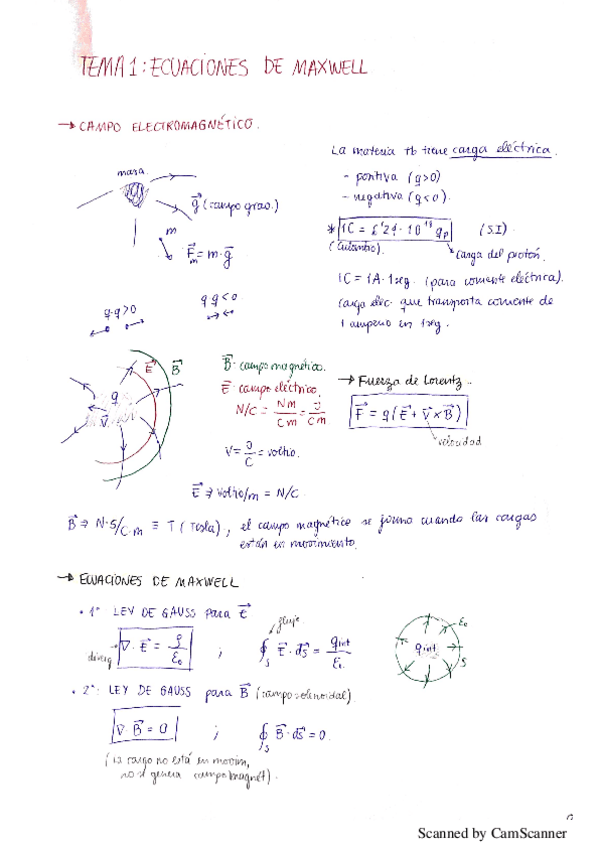 TEMA 1: ECUACIONES DE MAXWELL
→ CAMPO ELECTROMAGNÉTICO.
masa
g⃗ (campo grav.)
m
F⃗m = m·g⃗
q·q>0
q·q<0
La materia tb tiene carga eléctrica.
- positiva (q>0)
- negativa (q<0).
(S.I)
(Culombio).
Carga del protón.
1C = 1A·1seg. (para corriente eléctrica).
carga eléc. que transporta corriente de
1 amperio en 1seg.
E⃗
B⃗
q
v⃗
B⃗: campo magnético.
E⃗: campo eléctrico.
N/C = Nm/Cm = J/Cm
V = J/C = voltio.
E⃗ ⇒ voltio/m = N/C.
→ Fuerza de Lorentz..
F⃗ = q(E⃗ + v⃗ × B⃗)
velocidad
B⃗ ⇒ N·S/C·m ≡ T (Tesla), el campo magnético se forma cuando las cargas
están en movimiento.
→ ECUACIONES DE MAXWELL
• 1ª LEY DE GAUSS para E⃗
flujo
diverg
∇·E⃗ = ρ/ε₀ ; ∮s E⃗·ds⃗ = qint/ε.
ε₀
qint
S
• 2ª: LEY DE GAUSS para B⃗ (campo solenoidal).
∇·B⃗ = 0 ; ∮s B⃗·ds⃗ = 0.
(la carga no está en movim,
no se genera campo magnét).
Scanned by CamScanner